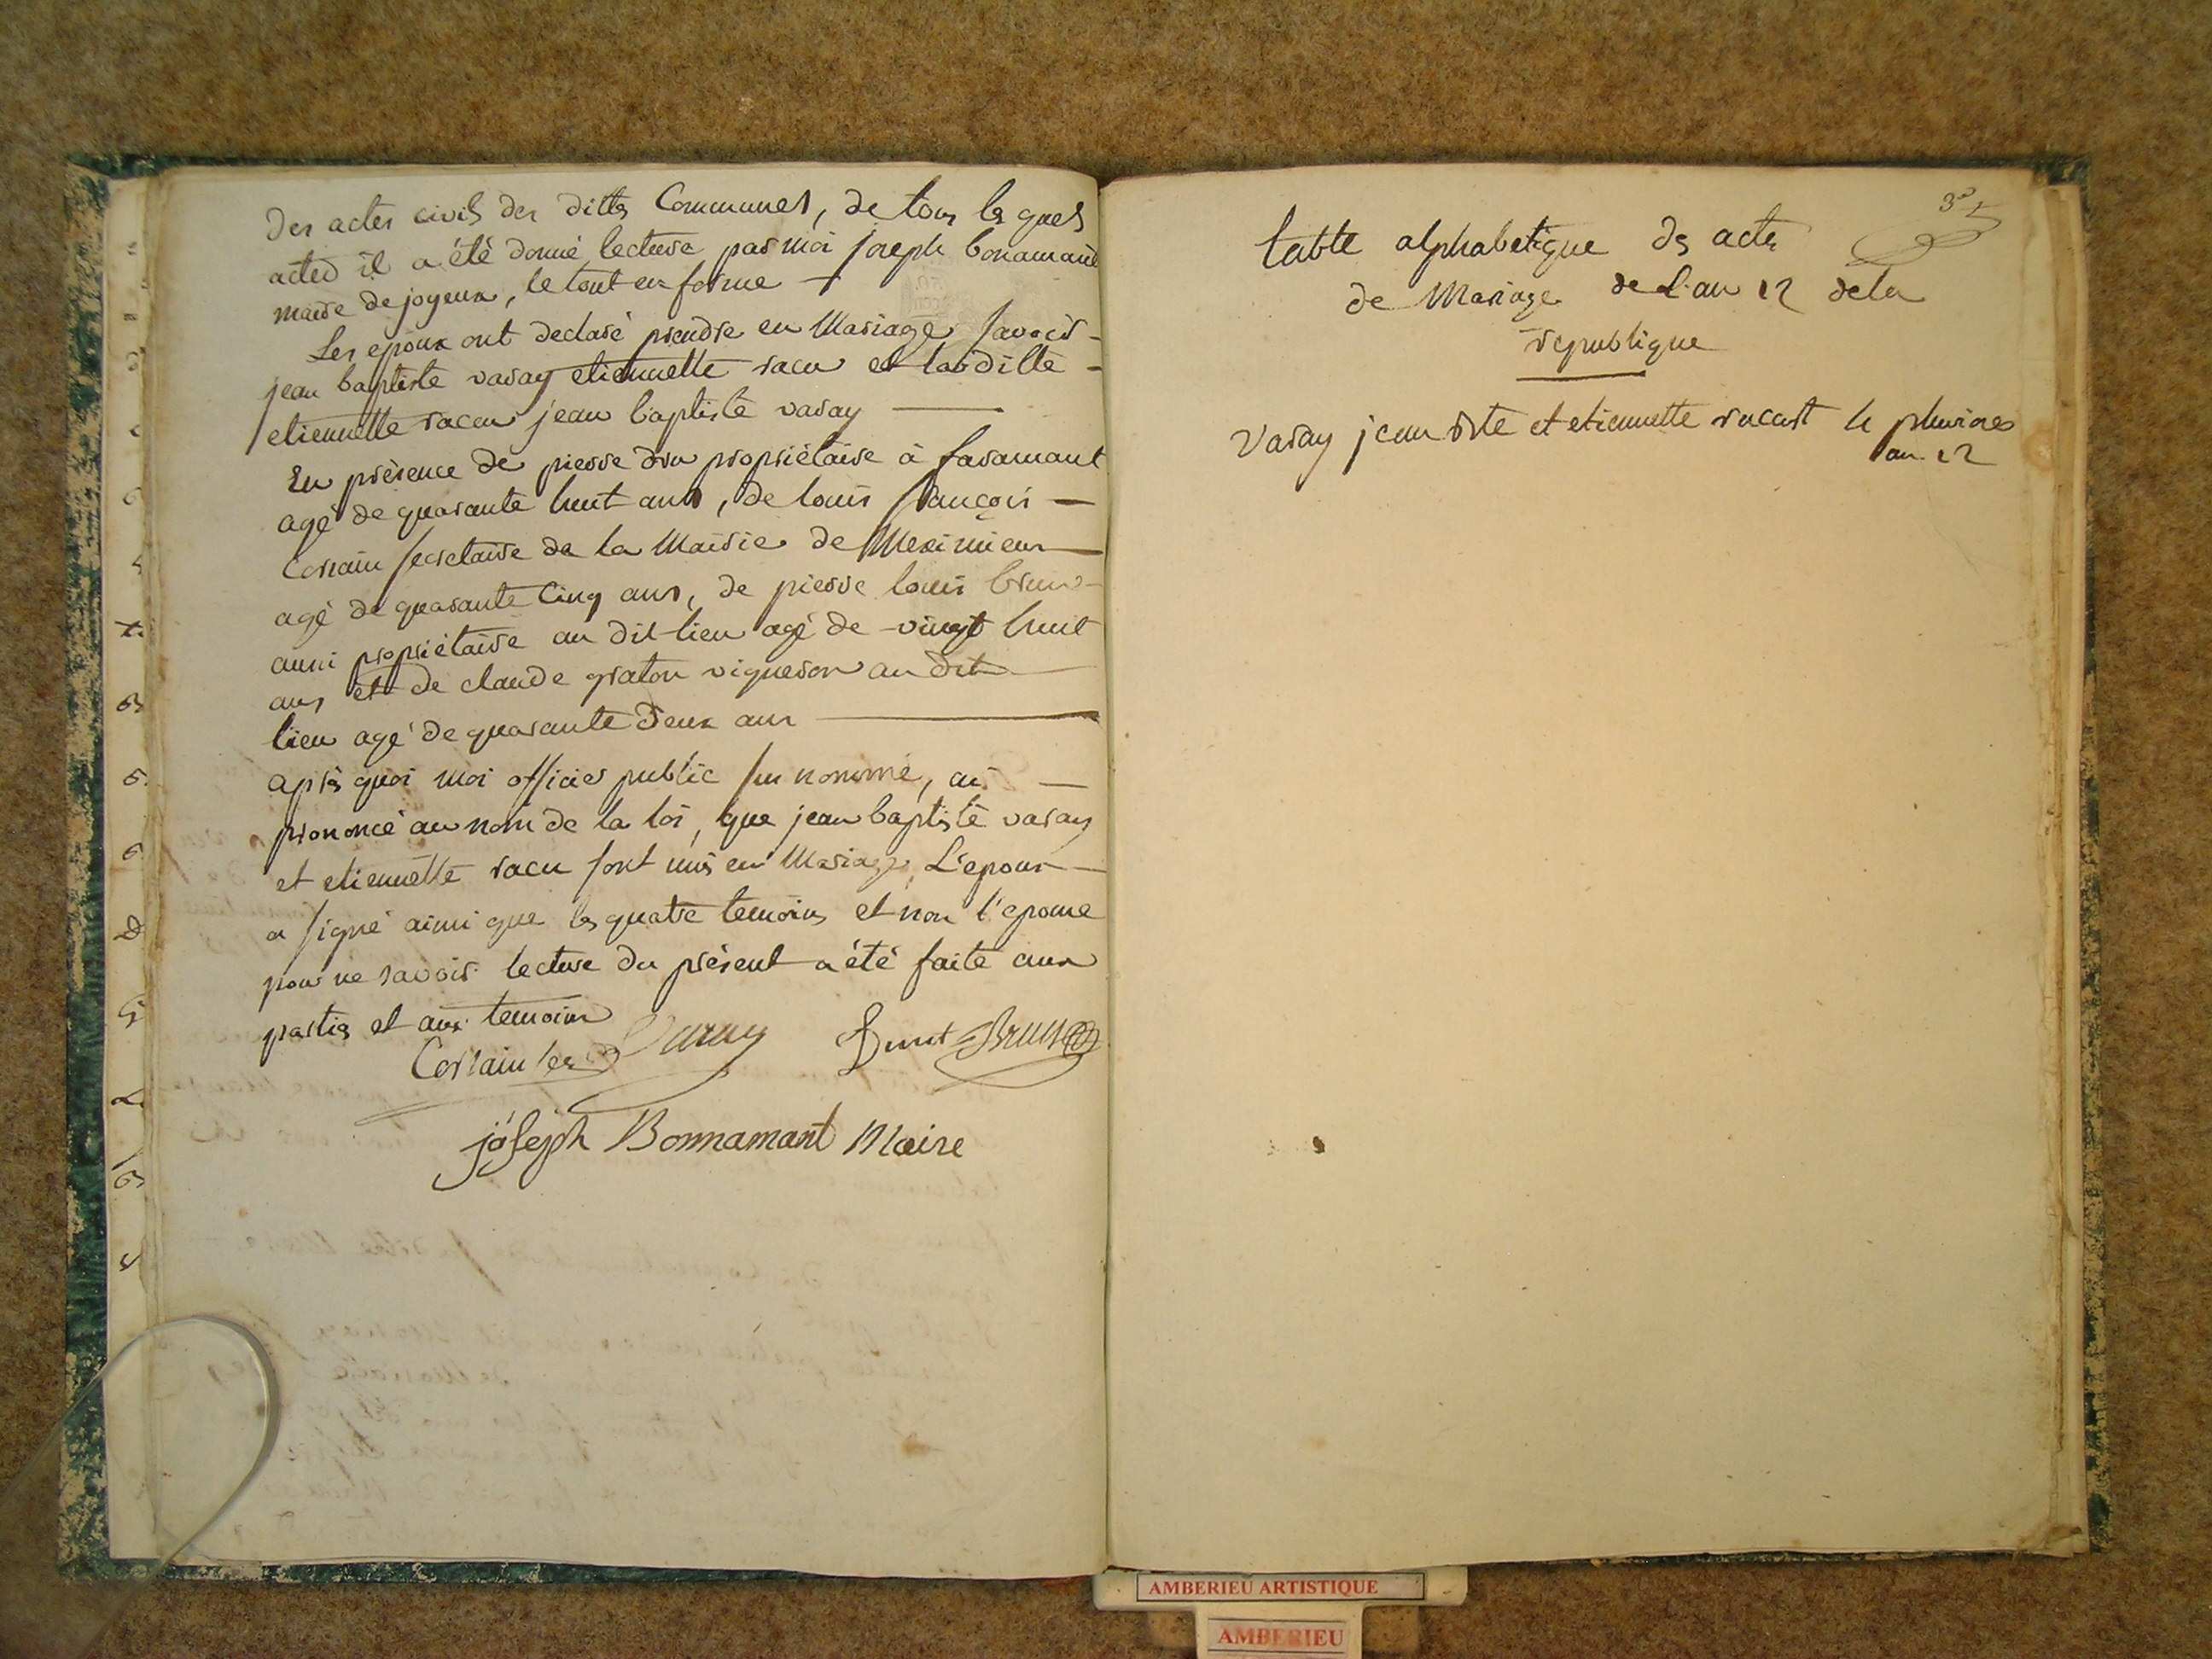 des actes civils des dittes Communes, de tous les quels
actes il a été donné lecture par moi joseph bonamant
maire de joyeux, le tout en forme
Les epoux ont declaré prendre en Mariage, savoir
jean baptiste varay etiennette racu et la ditte
etiennette racu jean baptiste varay
En présence de pierre dru propriétaire à faramant
agé de quarante huit ans, de louis françois
Corsain secretaire de la Mairie de Meximieux
agé de quarante Cinq ans, de pierre louis brun
aussi propriétaire au dit lieu agé de vingt huit
ans et de claude graton vigneron au dit
lieu agé de quarante deux ans
après quoi moi officier public sus nommé, ai
prononcé au nom de la loi, que jean baptiste varay
et etiennette racu sont unis en Mariage, L'epoux
a signé ainsi que les quatre temoins et non l'epouse
pour ne savoir lecture du présent a été faite aux
parties et aux temoins
Corsain Varay Brun
joseph Bonnamant Maire
table alphabetique des actes
de Mariage de l'an 12 de la
republique
Varay jean bte et etiennette racu le pluviose
an 12
AMBERIEU ARTISTIQUE
AMBERIEU